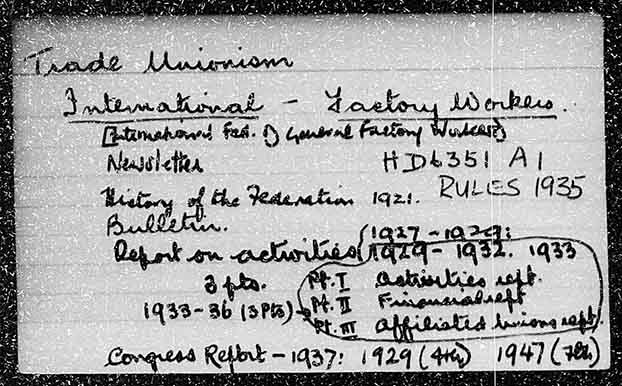 Trade Unionism
International - Factory Workers.
[International Fed. of General Factory Workers]
Newsletter HD6351 A1
History of the Federation 1921. RULES 1935
Bulletin.
Report on activities 1927-1929: 1929-1932. 1933
3 pts. Pt. I Activities rept.
1933-36 (3 Pts) Pt. II Financial rept
Pt. III Affiliated Unions rept.
Congress Report - 1937: 1929 (4th) 1947 (7th)